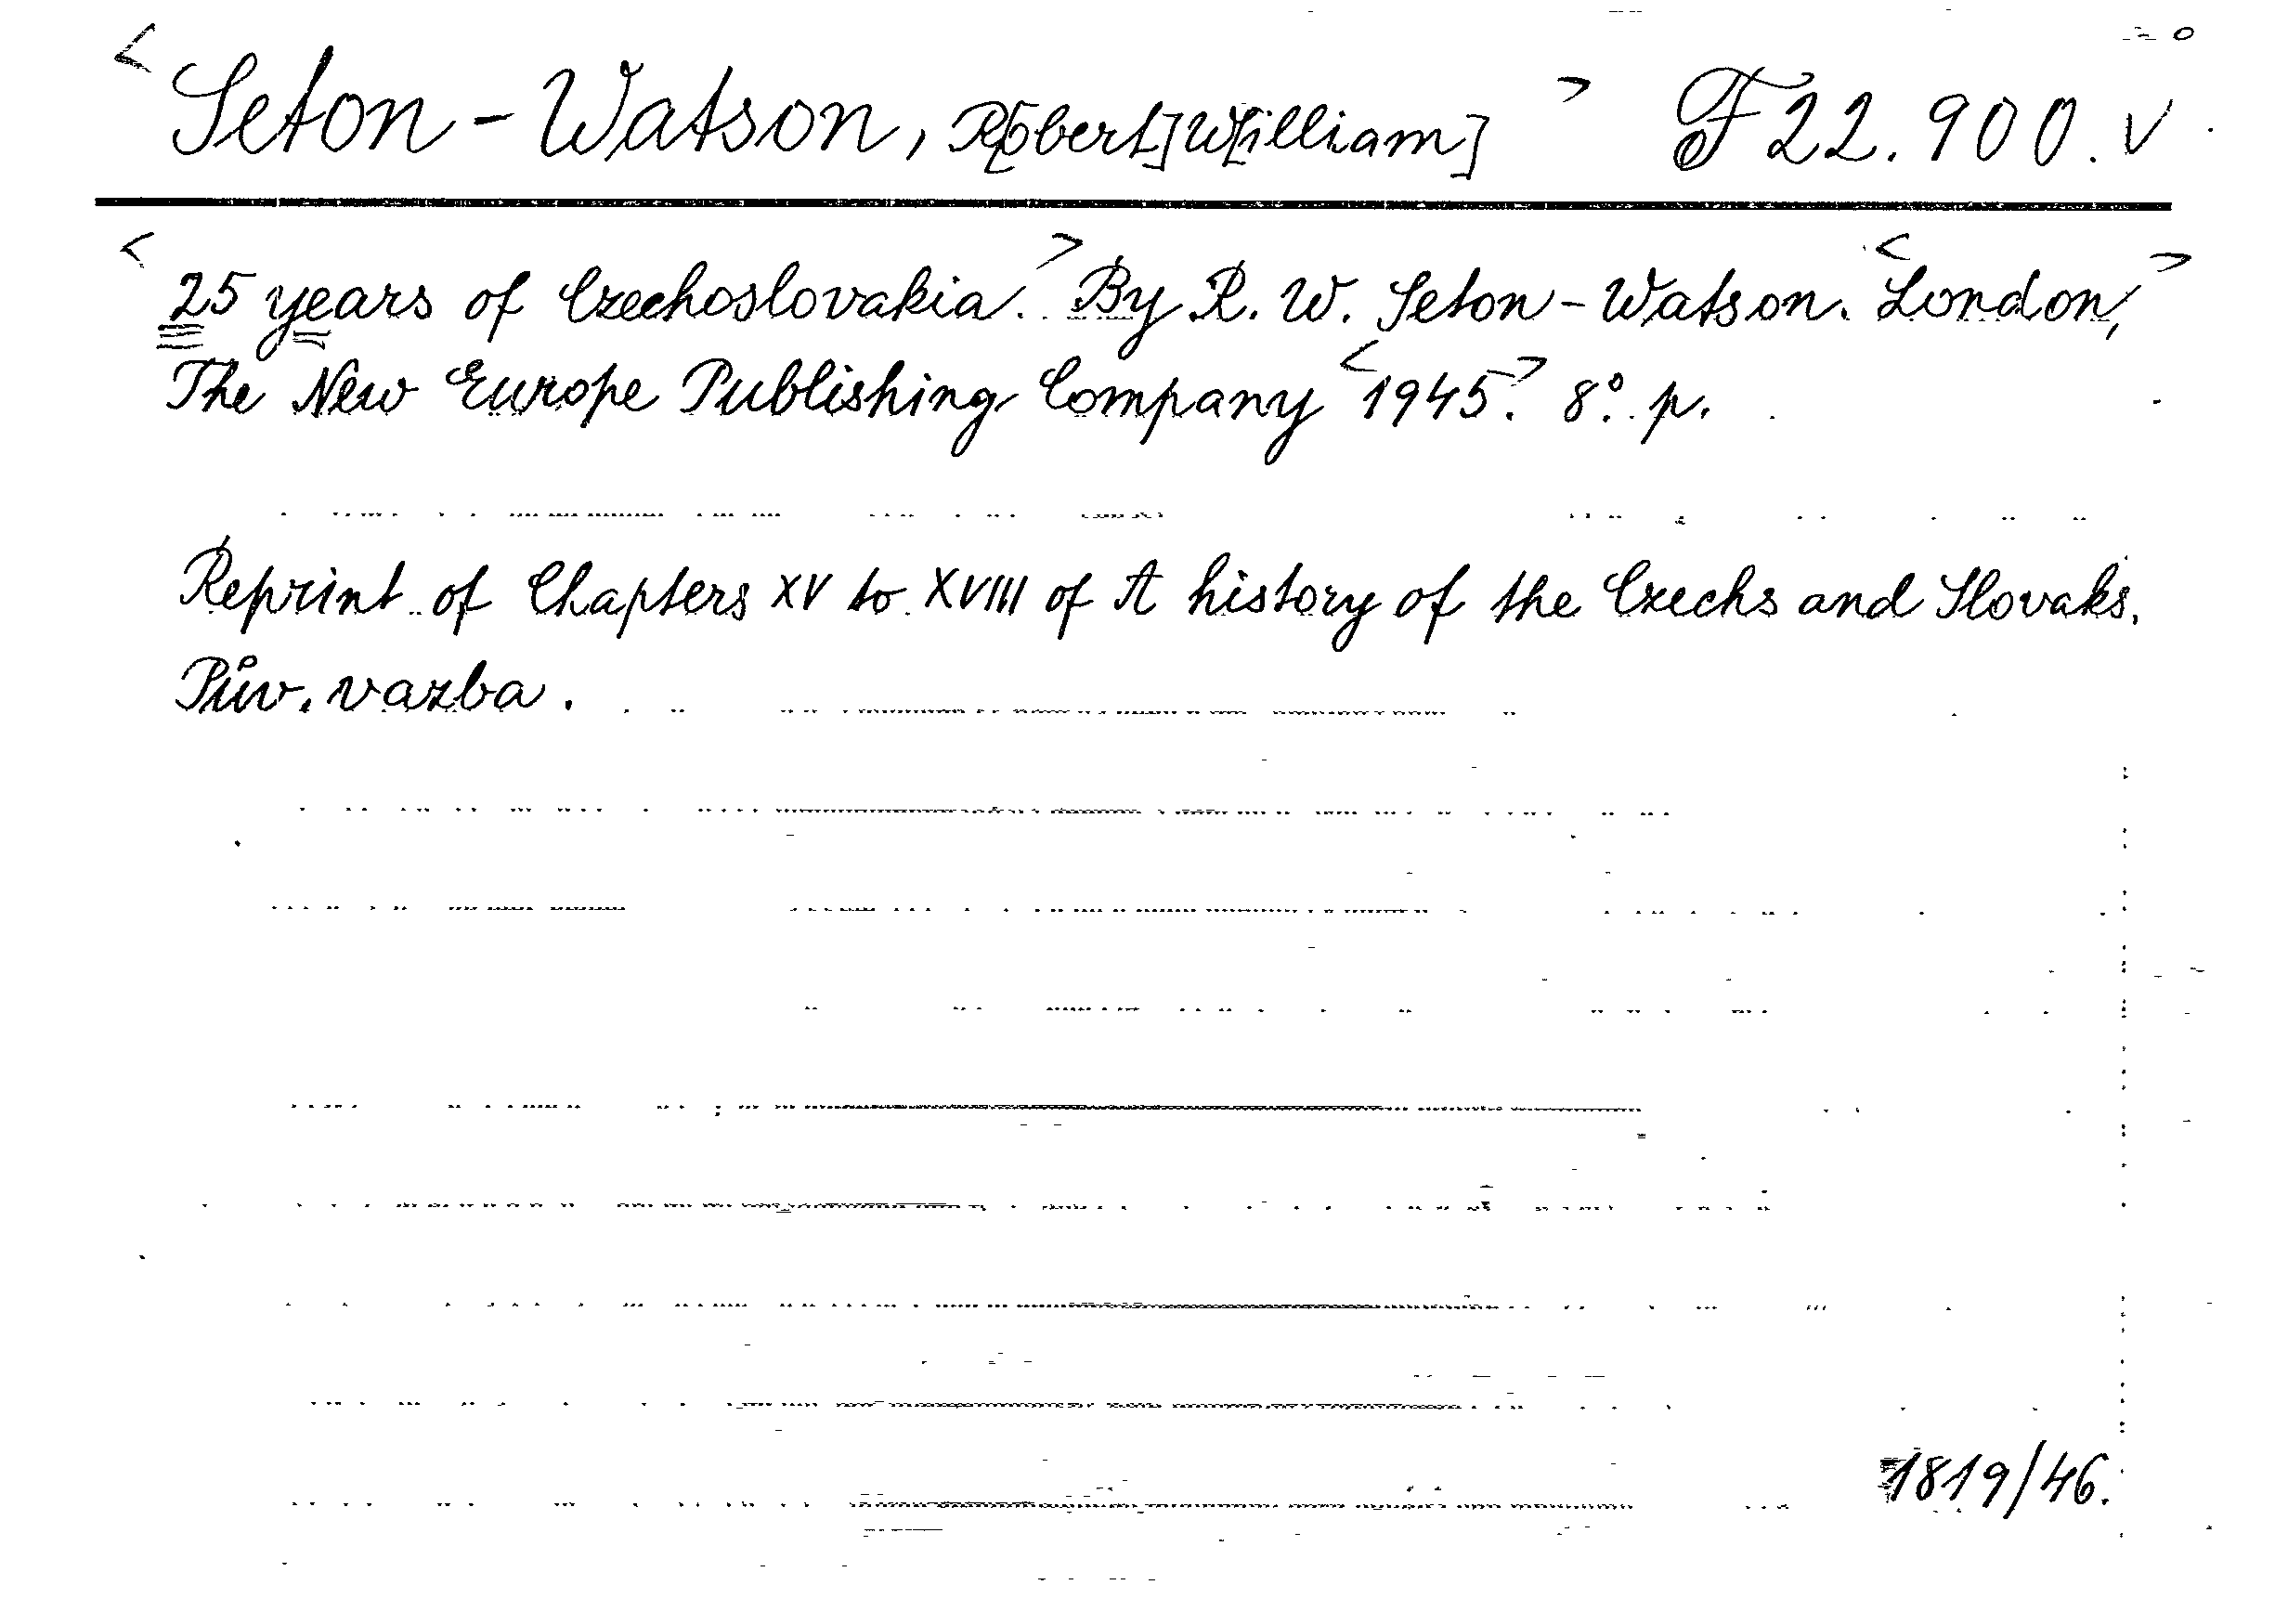 <Seton-Watson, R[obert] W[illiam]> F 22.900.v
<25 years of Czechoslovakia.> By R. W. Seton-Watson. <London,>
The New Europe Publishing Company <1945.> 8°. p.
Reprint of Chapters XV to XVIII of A history of the Czechs and Slovaks.
Pův. vazba.
1819/46.